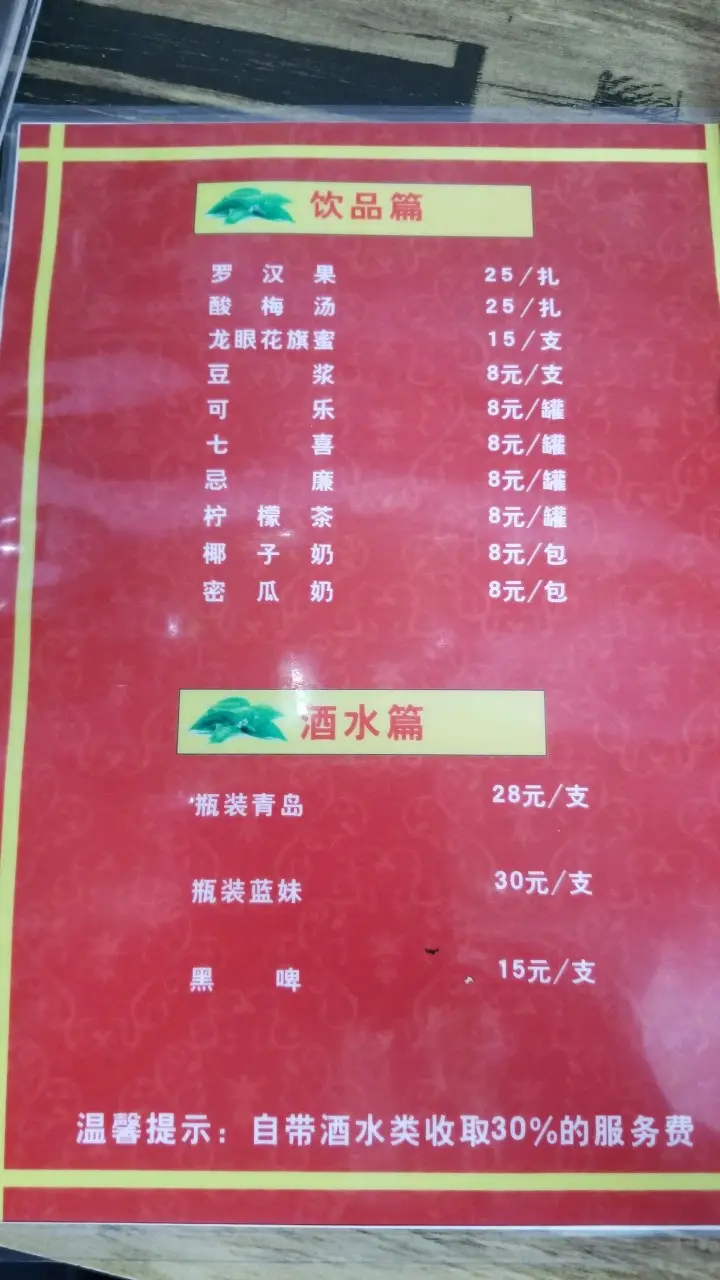 饮品篇
罗汉果 25/扎
酸梅汤 25/扎
龙眼花旗蜜 15/支
豆浆 8元/支
可乐 8元/罐
七喜 8元/罐
忌廉 8元/罐
柠檬茶 8元/罐
椰子奶 8元/包
密瓜奶 8元/包
酒水篇
瓶装青岛 28元/支
瓶装蓝妹 30元/支
黑啤 15元/支
温馨提示：自带酒水类收取30%的服务费